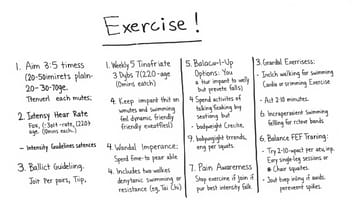 Exercise!
1. Aim 3:5 timess
(20-50imirets plain-
20-30-70ge.
each mutes;
2. Intensy Hear Rate
Fax, (220)
age. (0mins each.)
– Intensity Guidelines
3. Ballict Guideliing.
Joit Per pairs, Tiip,
1. Weekly 5 Tinsfriate
3 Dybs 7(220-age
(0mins eatch)
4. Keep impart thit on
wnutes and swimming
fed dynamic friendly
friendly
4. Wandal Imperance:
Spend fime-to pear able
4. Includes two walkes
swimming or
resistance (eg, Tai Chi)
5. Balaca-1-Up
Options: You
a Hur impant to well
but prevete falls)
4 Spend activites of
talking fleaking by
seatiing but
- bodyweight Crecite,
9. bodyweight trrends,
eng per squats.
7. Pain Awareness
Stop exercise if pain if
pur best intensify falt.
3. Exerriess:
- Inclch walking for swimming
Cardio or srimming Exercise
- Act 2-10 minutes.
6. swimming
falling for richne bands
6. Balance FEF Traning:
- Try 2-10-xpect per
Eary single-leg sessions or
● Char squates.
- Jout bwep inling if areds.
spikes.